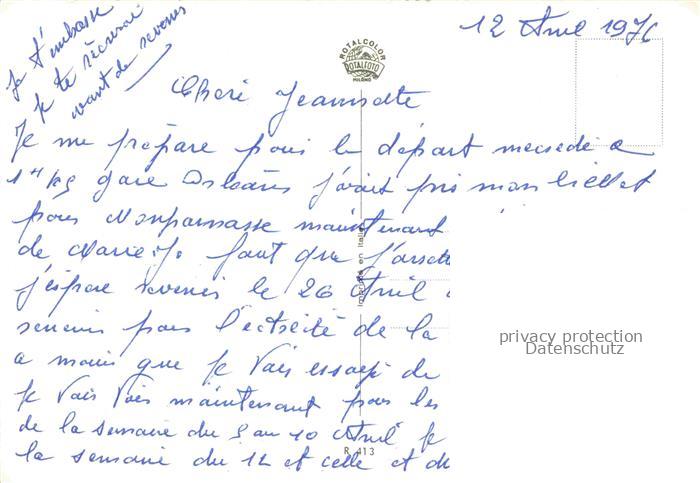 12 Avril 1976
Je t'embrasse
Je te récrirai
avant de revenir
ROTALCOLOR
ROTALFOTO
MILANO
Cheré Jeannette
Je me prépare pour le départ
gare j'avais pris mon billet
pour Monparnasse maintenant
de faut que
j'espère revenir le 26 Avril
pour de la
a moins que je vais essayé de
Je vais voir maintenant pour les
de la semaine du 5 au 10 Avril je
la semaine du 12 et celle et du
Imprimé en Italie
R. 413
privacy protection
Datenschutz